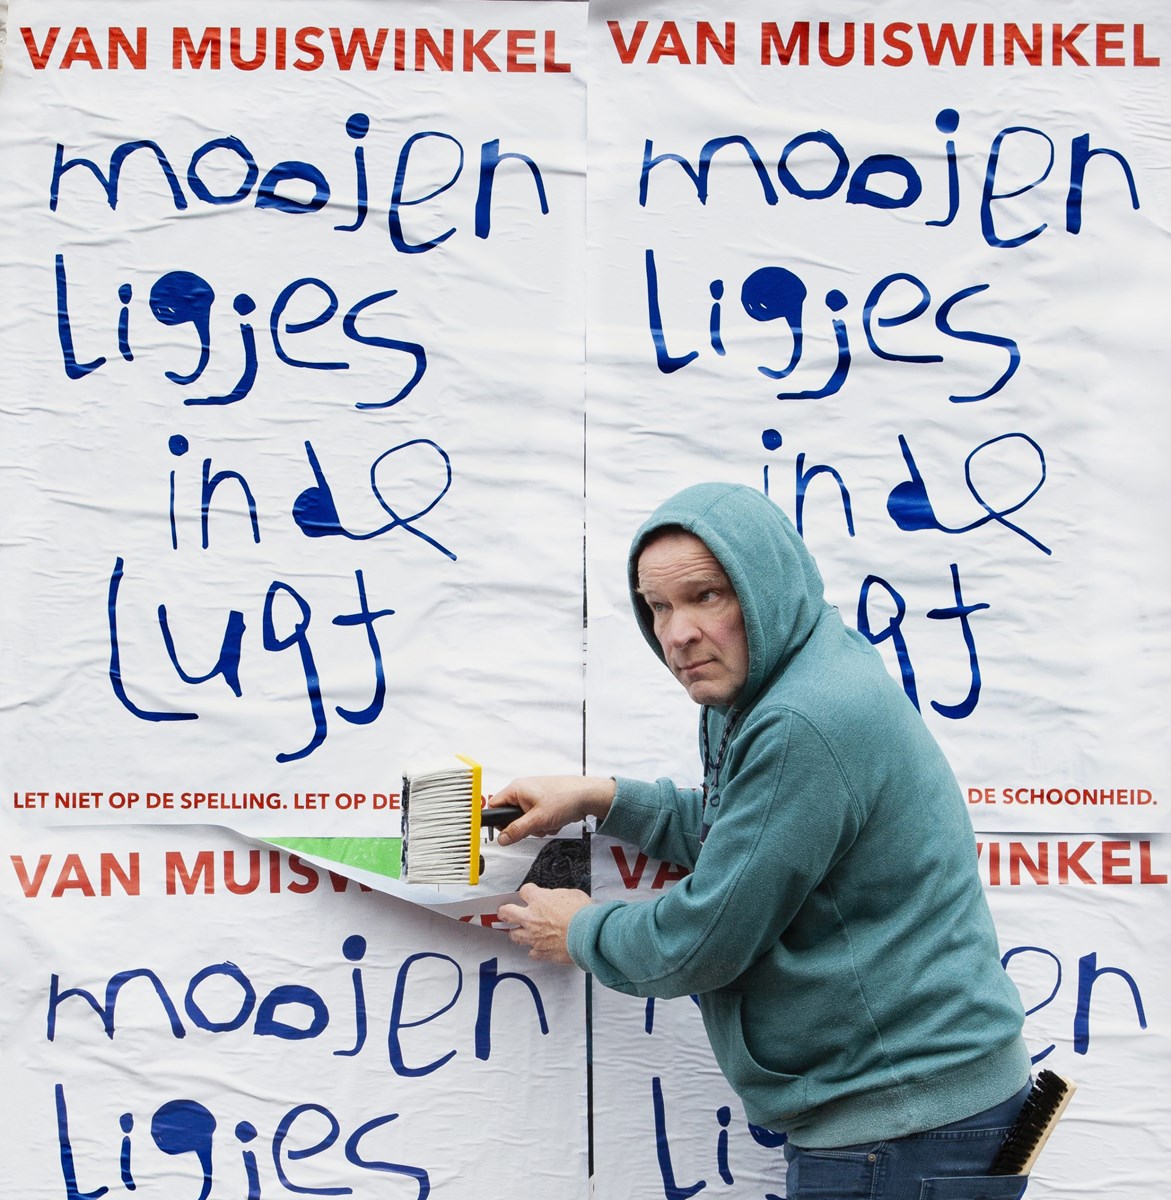 VAN MUISWINKEL
moojen
ligjes
in de
lugt
LET NIET OP DE SPELLING. LET OP DE
VAN MUISWINKEL
moojen
ligjes
in de
gt
DE SCHOONHEID.
VAN MUISW
moojen
ligjes
VA
WINKEL
en
li